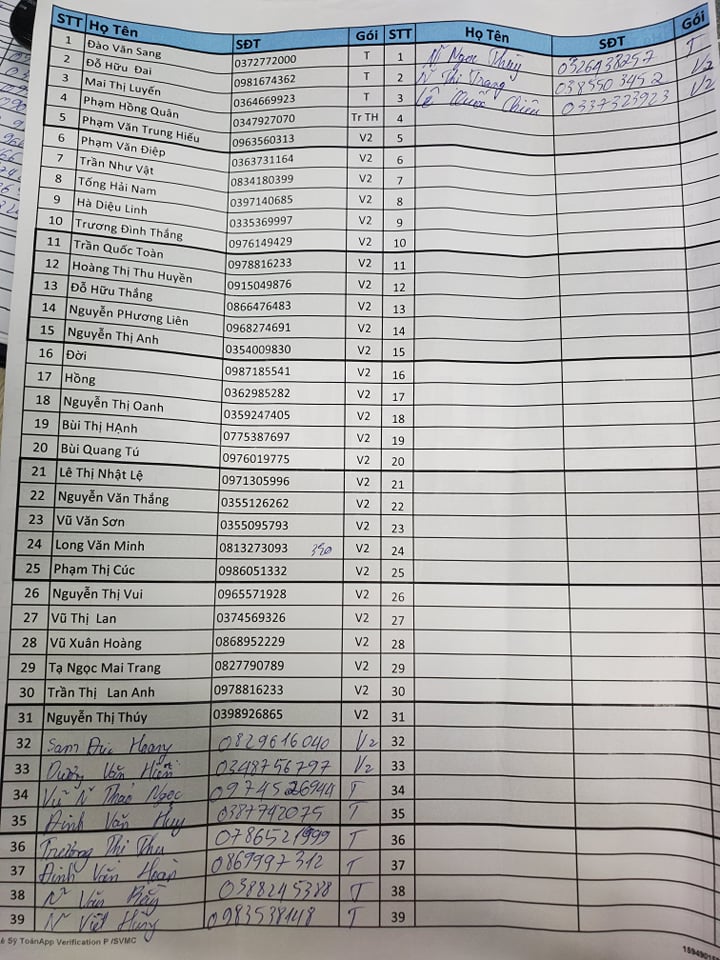 STT Họ Tên SĐT Gói STT Họ Tên SĐT Gói
1 Đào Văn Sang 0372772000 T 1 Nĩ Ngọc Thúy 0326438257 T
2 Đỗ Hữu Đai 0981674362 T 2 Nĩ Thị Trang 0385503452 V2
3 Mai Thị Luyến 0364669923 T 3 Lê Quốc Chiêu 0337323923 V2
4 Phạm Hồng Quân 0347927070 Tr TH 4
5 Phạm Văn Trung Hiếu 0963560313 V2 5
6 Phạm Văn Điệp 0363731164 V2 6
7 Trần Như Vật 0834180399 V2 7
8 Tống Hải Nam 0397140685 V2 8
9 Hà Diệu Linh 0335369997 V2 9
10 Trương Đình Thắng 0976149429 V2 10
11 Trần Quốc Toàn 0978816233 V2 11
12 Hoàng Thị Thu Huyền 0915049876 V2 12
13 Đỗ Hữu Thắng 0866476483 V2 13
14 Nguyễn PHương Liên 0968274691 V2 14
15 Nguyễn Thị Anh 0354009830 V2 15
16 Đời 0987185541 V2 16
17 Hồng 0362985282 V2 17
18 Nguyễn Thị Oanh 0359247405 V2 18
19 Bùi Thị HẠnh 0775387697 V2 19
20 Bùi Quang Tú 0976019775 V2 20
21 Lê Thị Nhật Lệ 0971305996 V2 21
22 Nguyễn Văn Thắng 0355126262 V2 22
23 Vũ Văn Sơn 0355095793 V2 23
24 Long Văn Minh 0813273093 390 V2 24
25 Phạm Thị Cúc 0986051332 V2 25
26 Nguyễn Thị Vui 0965571928 V2 26
27 Vũ Thị Lan 0374569326 V2 27
28 Vũ Xuân Hoàng 0868952229 V2 28
29 Tạ Ngọc Mai Trang 0827790789 V2 29
30 Trần Thị Lan Anh 0978816233 V2 30
31 Nguyễn Thị Thúy 0398926865 V2 31
32 Sam Đức Hoàng 0829616040 V2 32
33 Dương Văn Hiển 0348756797 V2 33
34 Vũ N Thảo Ngọc 0974526944 T 34
35 Đinh Văn Huy 0387742075 T 35
36 Trương Thị Thu 0786521999 T 36
37 Đinh Văn Hoan 0869997312 T 37
38 Nĩ Văn Bảy 0388245388 T 38
39 Nĩ Việt Hùng 0983538148 T 39
Sỹ ToánApp Verification P /SVMC